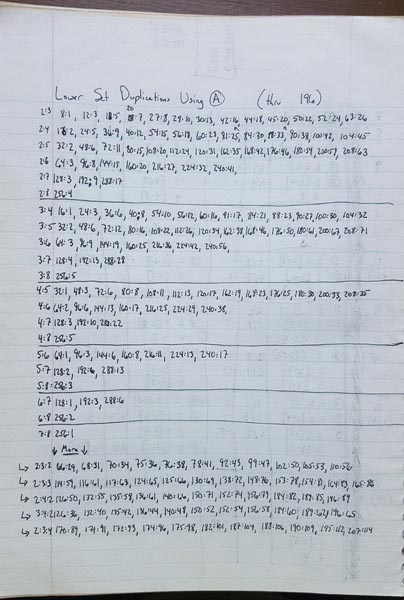 Lower Set Duplications Using A (thru 196)
2:3 8:1, 12:3, 18:5, 20:7, 27:8, 24:10, 30:13, 42:16, 44:18, 45:20, 50:22, 52:24, 63:26
2:4 18:2, 24:5, 36:9, 40:12, 54:15, 56:18, 60:23, 81:25, 84:30, 88:33, 90:38, 100:42, 104:45
2:5 32:2, 48:6, 72:11, 80:15, 108:20, 112:24, 120:31, 162:35, 168:42, 176:46, 180:54, 200:59, 208:63
2:6 64:3, 96:8, 144:15, 160:20, 216:27, 224:32, 240:41,
2:7 128:3, 192:9, 288:17
2:8 256:4
3:4 16:1, 24:3, 36:6, 40:8, 54:10, 56:12, 60:16, 81:17, 84:21, 88:23, 90:27, 100:30, 104:32
3:5 32:2, 48:6, 72:12, 80:16, 108:22, 112:26, 120:34, 162:38, 168:46, 176:50, 180:61, 200:67, 208:71
3:6 64:3, 96:9, 144:19, 160:25, 216:36, 224:42, 240:56,
3:7 128:4, 192:13, 288:28
3:8 256:5
4:5 32:1, 48:3, 72:6, 80:8, 108:11, 112:13, 120:17, 162:19, 168:23, 176:25, 180:30, 200:33, 208:35
4:6 64:2, 96:6, 144:13, 160:17, 216:25, 224:29, 240:38,
4:7 128:3, 192:10, 288:22
4:8 256:5
5:6 64:1, 96:3, 144:6, 160:8, 216:11, 224:13, 240:17
5:7 128:2, 192:6, 288:13
5:8 256:3
6:7 128:1, 192:3, 288:6
6:8 256:2
7:8 256:1
↓ More ↓
↳ 2:3:2 66:29, 68:31, 70:34, 75:36, 76:38, 78:41, 92:43, 99:47, 102:50, 105:53, 110:56
↳ 2:3:3 114:59, 116:61, 117:63, 124:65, 125:66, 130:69, 138:72, 148:76, 153:78, 154:81, 164:83, 165:86
↳ 2:4:2 126:50, 132:55, 135:58, 136:61, 140:66, 150:71, 152:74, 156:79, 184:82, 189:85, 196:89
↳ 3:4:2 126:36, 132:40, 135:42, 136:44, 140:48, 150:52, 152:54, 156:58, 184:60, 189:62, 196:65
↳ 2:3:4 170:89, 171:91, 172:93, 174:96, 175:98, 182:101, 187:104, 188:106, 190:109, 195:112, 207:114